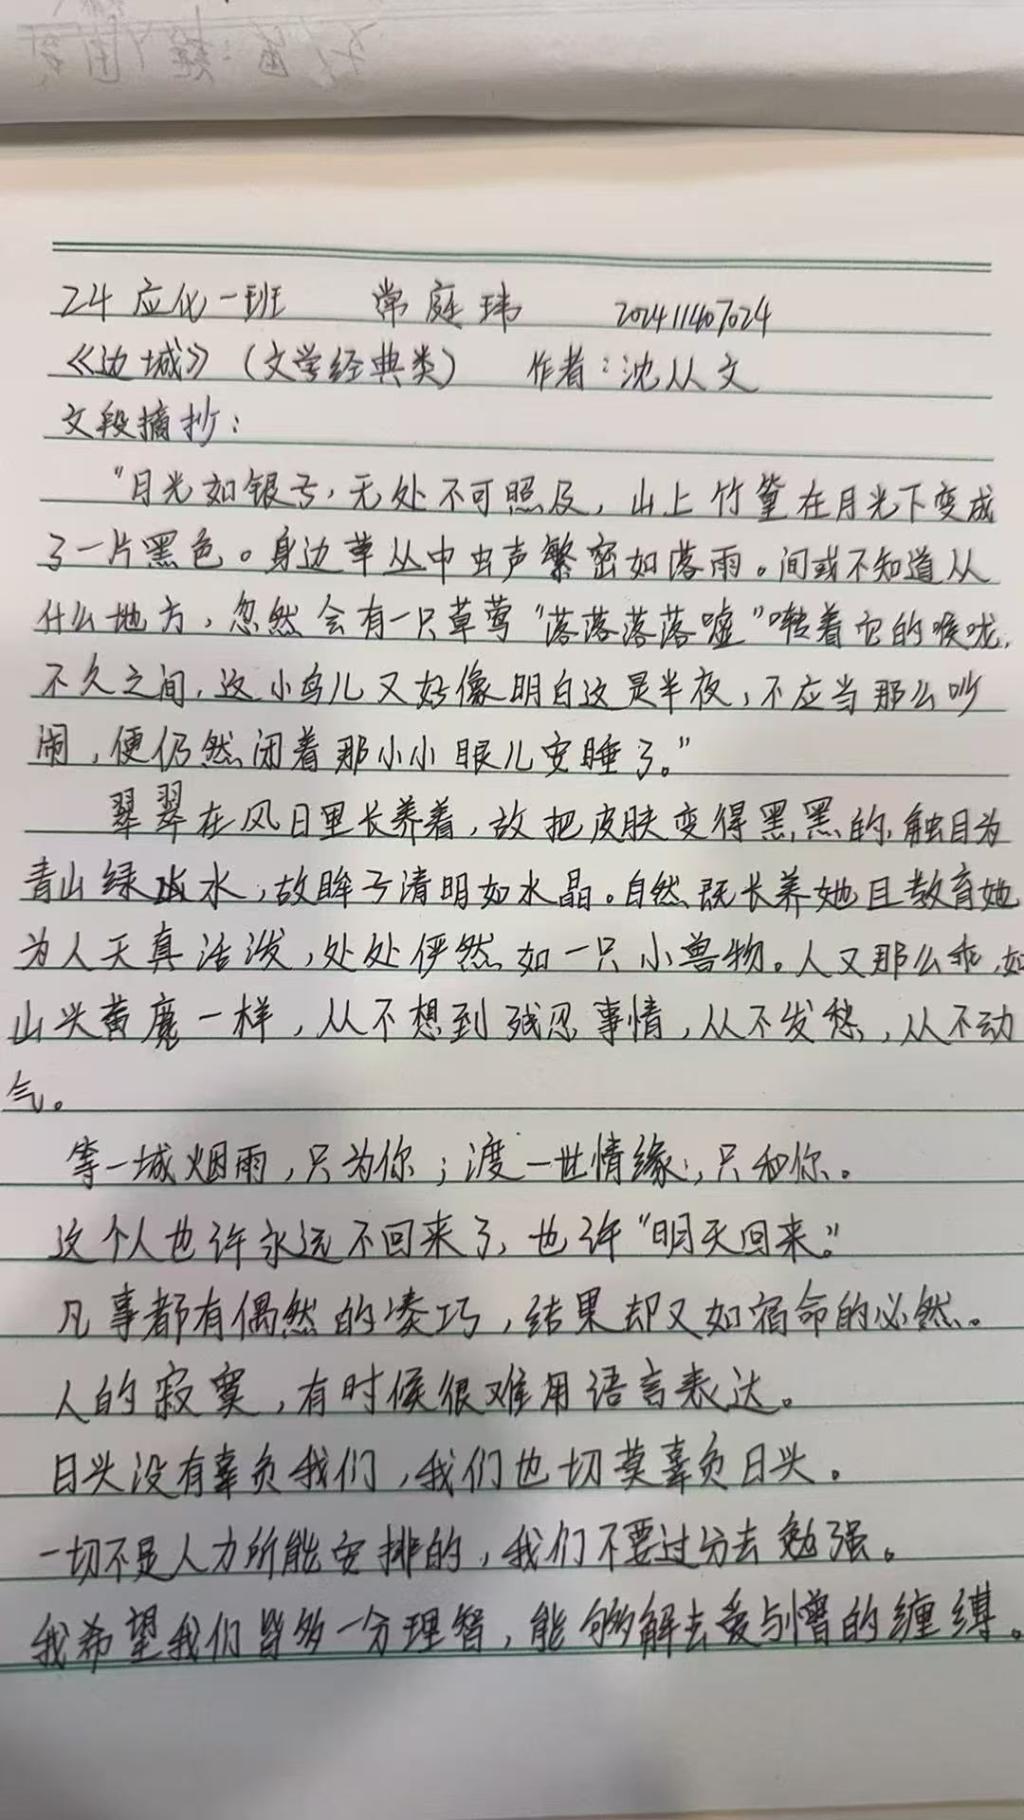 24应化一班 常庭玮 202411407024
《边城》（文学经典类） 作者：沈从文
文段摘抄：
“月光如银子，无处不可照及，山上竹篁在月光下变成
了一片黑色。身边草丛中虫声繁密如落雨。间或不知道从
什么地方，忽然会有一只草莺“落落落落嘘”啭着它的喉咙，
不久之间，这小鸟儿又好像明白这是半夜，不应当那么吵
闹，便仍然闭着那小小眼儿安睡了。”
翠翠在风日里长养着，故把皮肤变得黑黑的，触目为
青山绿水，故眸子清明如水晶。自然既长养她且教育她
为人天真活泼，处处俨然如一只小兽物。人又那么乖，如
山头黄麂一样，从不想到残忍事情，从不发愁，从不动
气。
等一城烟雨，只为你；渡一世情缘，只和你。
这个人也许永远不回来了，也许“明天回来。”
凡事都有偶然的凑巧，结果却又如宿命的必然。
人的寂寞，有时候很难用语言表达。
日头没有辜负我们，我们也切莫辜负日头。
一切不是人力所能安排的，我们不要过分去勉强。
我希望我们皆多一分理智，能够解去爱与憎的缠缚。